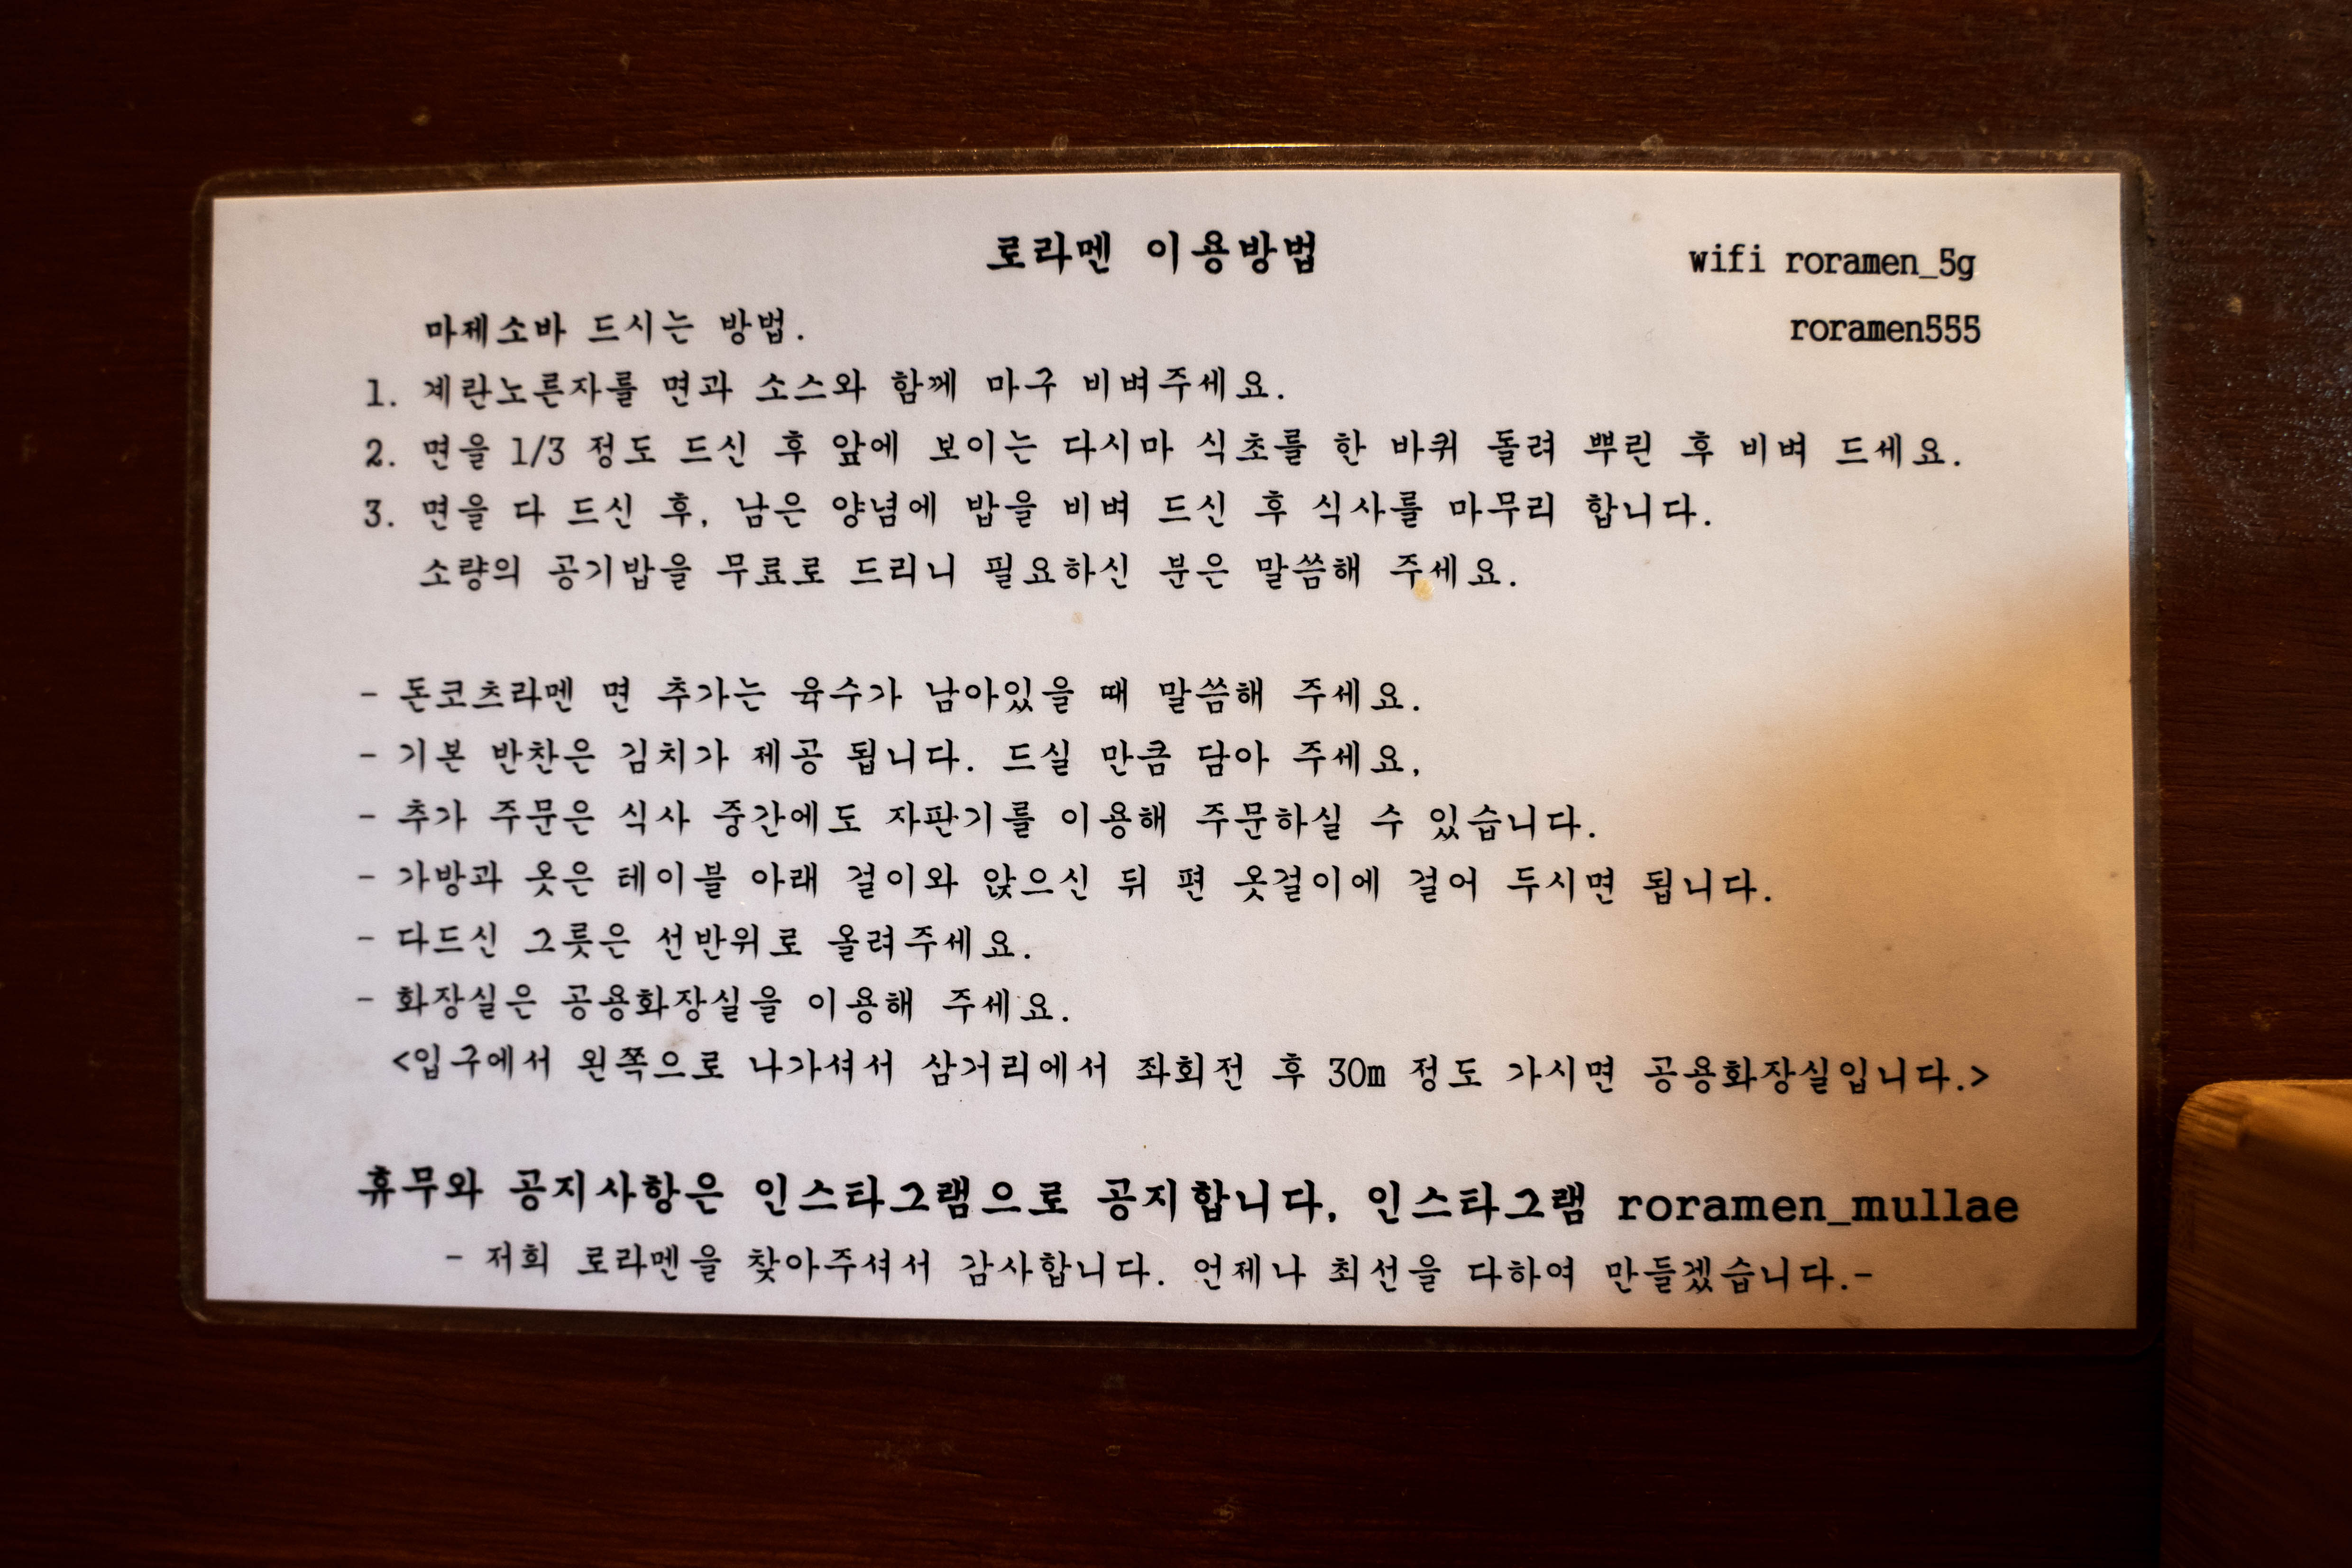 로라멘 이용방법
wifi roramen_5g
roramen555
마제소바 드시는 방법.
1. 계란노른자를 면과 소스와 함께 마구 비벼주세요.
2. 면을 1/3 정도 드신 후 앞에 보이는 다시마 식초를 한 바퀴 돌려 뿌린 후 비벼 드세요.
3. 면을 다 드신 후, 남은 양념에 밥을 비벼 드신 후 식사를 마무리 합니다.
소량의 공기밥을 무료로 드리니 필요하신 분은 말씀해 주세요.
- 돈코츠라멘 면 추가는 육수가 남아있을 때 말씀해 주세요.
- 기본 반찬은 김치가 제공 됩니다. 드실 만큼 담아 주세요,
- 추가 주문은 식사 중간에도 자판기를 이용해 주문하실 수 있습니다.
- 가방과 옷은 테이블 아래 걸이와 앉으신 뒤 편 옷걸이에 걸어 두시면 됩니다.
- 다드신 그릇은 선반위로 올려주세요.
- 화장실은 공용화장실을 이용해 주세요.
<입구에서 왼쪽으로 나가셔서 삼거리에서 좌회전 후 30m 정도 가시면 공용화장실입니다.>
휴무와 공지사항은 인스타그램으로 공지합니다, 인스타그램 roramen_mullae
- 저희 로라멘을 찾아주셔서 감사합니다. 언제나 최선을 다하여 만들겠습니다.-